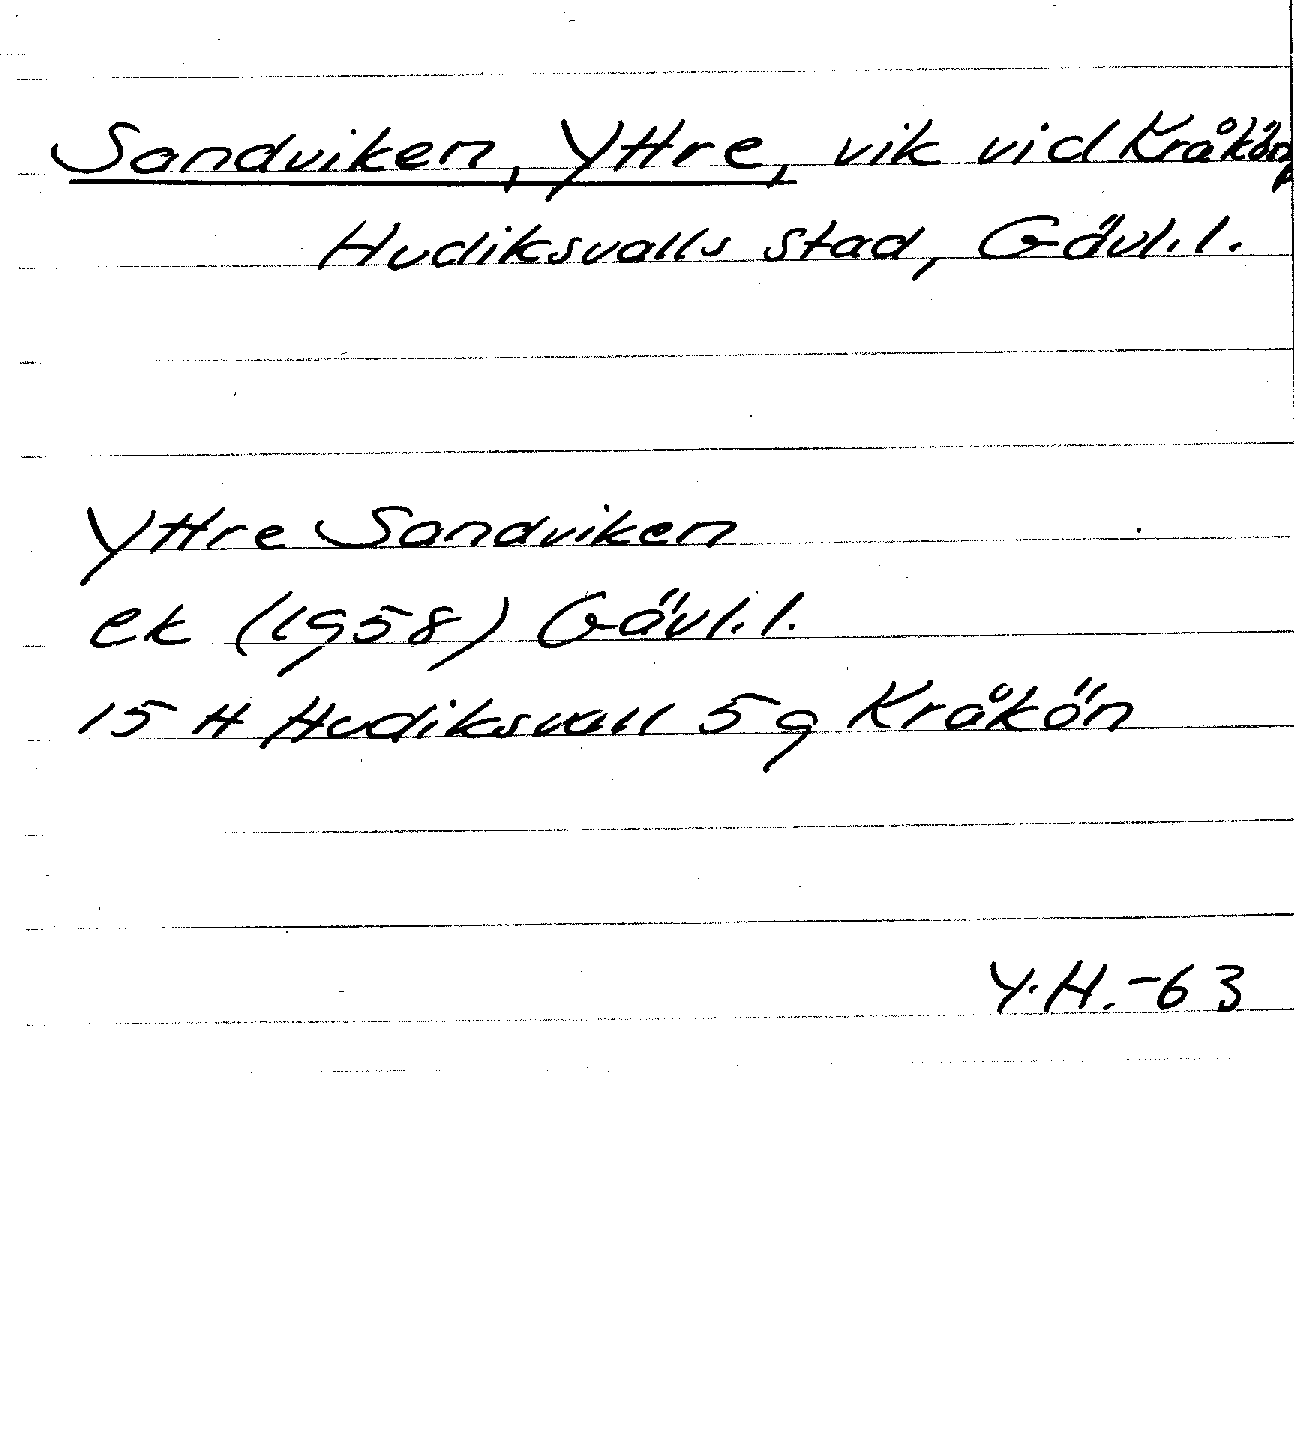 Sandviken, Yttre, vik vid Kråkön,
Hudiksvalls stad, Gävl.l.
Yttre Sandviken
ek (1958) Gävl.l.
15 H Hudiksvall 5g Kråkön
Y.H.-63